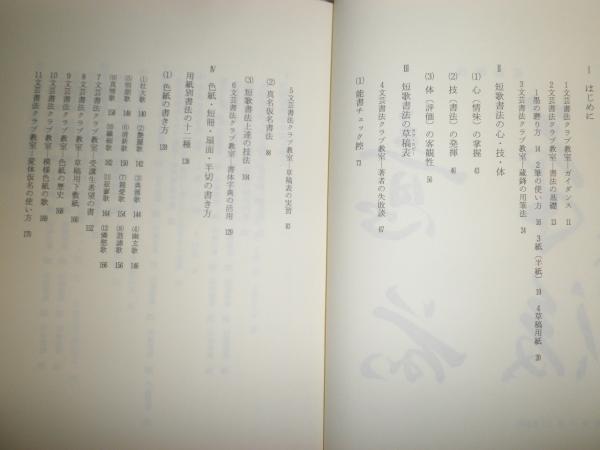 I はじめに
1文芸書法クラブ教室―ガイダンス 11
2文芸書法クラブ教室―書法の基礎 13
1墨の磨り方 14 2筆の使い方 16 3紙(半紙) 19 4草稿用紙 20
3文芸書法クラブ教室―蔵鋒の用筆法 24
II 短歌書法の心・技・体
(1) 心(情味)の掌握 40
(2) 技(書法)の発揮 43
(3) 体(評価)の客観性 56
4文芸書法クラブ教室―著者の失敗談 67
III 短歌書法の草稿表
(1) 能書チェック控 73
5文芸書法クラブ教室―草稿表の実習 83
(2) 真名仮名書法 88
(3) 短歌書法上達の技法 104
6文芸書法クラブ教室―書体字典の活用 129
IV 色紙・短冊・扇面・半切の書き方
用紙別書法の十二種 138
(1) 色紙の書き方 139
(1)壮大歌 140 (2)艶麗歌 142 (3)典雅歌 144 (4)幽玄歌 146
(5) 148 (6)清新歌 150 (7)親愛歌 154 (8)諧謔歌 156
(9)真情歌 158 (10) 162 (11)寂寥歌 164 (12) 166
7文芸書法クラブ教室―受講生希望の書 152
8文芸書法クラブ教室―草稿用下敷紙 160
9文芸書法クラブ教室―色紙の歴史 168
10文芸書法クラブ教室―模様色紙の歌 169
11文芸書法クラブ教室―変体仮名の使い方 170